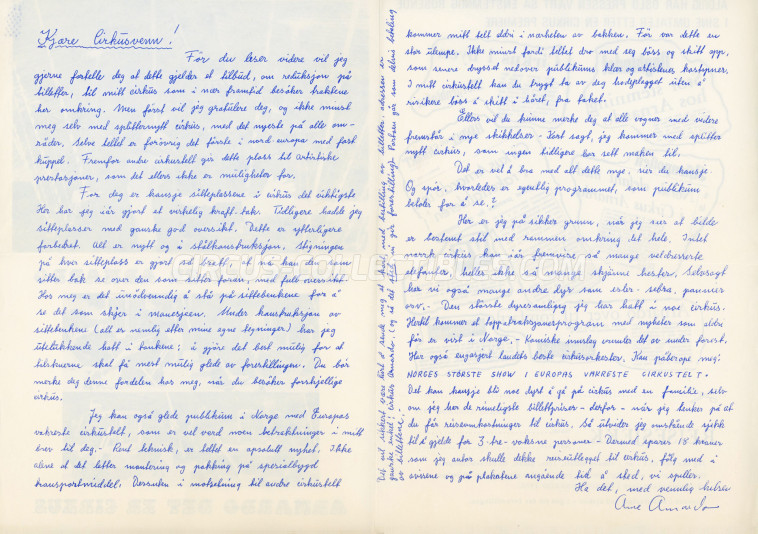 Kjære Cirkusvenn!
Før du leser videre vil jeg
gjerne fortelle deg at dette gjelder et tilbud, om reduksjon på
billetter, til mitt cirkus som i nær fremtid besøker traktene
her omkring. Men først vil jeg gratulere deg, og ikke minst
meg selv med splitternytt cirkus, med det nyeste på alle om-
råder, selve teltet er forøvrig det første i nord europa med fast
kuppel. Fremfor andre cirkustelt gir dette plass til artistiske
prestasjoner, som det ellers ikke er muligheter for.
For deg er kansje sitteplassene i cirkus det viktigste
Her har jeg i år gjort et virkelig kraft-tak. Tidligere hadde jeg
sitteplasser med ganske god oversikt. Dette er ytterligere
forbedret. Alt er nytt og i stålkonstruksjon. Stigningen
på hver sitteplass er gjort så bratt, at nå kan den som
sitter bak se over den som sitter foran, med full oversikt.
Hos meg er det unødvendig å stå på sittebenkene for å
se det som skjer i manesjeen. Under konstruksjon av
sittebenkene (alt er nemlig etter mine egne tegninger) har jeg
utelukkende hatt i tankene; å gjøre det best mulig for at
tilskuerne skal få mest mulig glede av forestillingen. Du bør
merke deg denne fordelen hos meg, når du besøker forskjellige
cirkus.
Jeg kan også glede publikum i Norge med Europas
vakreste cirkustelt, som er vel verd noen betraktninger i mitt
brev til deg.- Rent teknisk, er teltet en absolutt nyhet. Ikke
alene at det letter montering og pakking på spesialbygd
transportmiddel. Dessuten i motsetning til andre cirkustelt
kommer mitt telt aldri i nærheten av bakken. Før var dette en
stor ulempe. Ikke minst fordi teltet dro med seg böss og skitt opp,
som senere drysset nedover publikums klær og artistenes kostymer.
I mitt cirkustelt kan du trygt ta av deg hodeplagget uten å
risikere böss å skitt i håret, fra taket.
Ellers vil du kunne merke deg at alle vogner med videre
fremstår i nye skikkelser - Kort sagt, jeg kommer med splitter
nytt cirkus, som ingen tidligere har sett maken til.
Det er vel å bra med alt dette nye, sier du kansje
Og spør, hvorledes er egentlig programmet, som publikum
betaler for å se?
Her er jeg på sikker grunn, når jeg sier at bildet
er bestemt stil med rammen omkring det hele. Intet
norsk cirkus kan i år fremvise så mange veldresserte
elefanter, heller ikke så mange skjønne hester. Selvsagt
har vi også mange andre dyr som esler - sebra, ponnier
osv.- Den største dyresamling jeg har hatt i noe cirkus.
Hertil kommer et toppbransjensprogram med nyheter som aldri
før er vist i Norge.- Komiske innslag venter det av under forest.
Har også engasjert landets beste cirkusorkester. Kan påberope meg:
NORGES STÖRSTE SHOW I EUROPAS VAKRESTE CIRKUSTELT.
Det kan kansje bli noe dyrt å gå på cirkus med en familie, selv
om jeg har de rimeligste billettpriser - derfor - når jeg tenker på at
du får reiseomkostninger til cirkus. Så utvider jeg omstående sjekk
til å gjelde for 3-tre-voksne personer - Dermed sparer 18 kroner
som jeg antar skulle dekke reiseutlegget til cirkus, følg med i
avisene og på plakatene angående tid å sted, vi spiller.
Ha det, med vennlig hilsen
Arne Arnardo